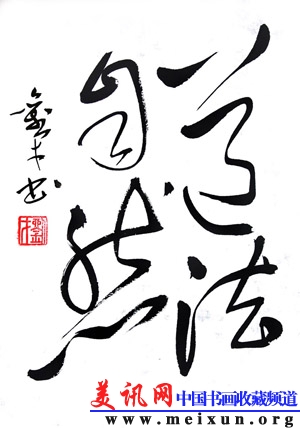 道法
自然
美讯网 中国书画收藏频道
www.meixun.org